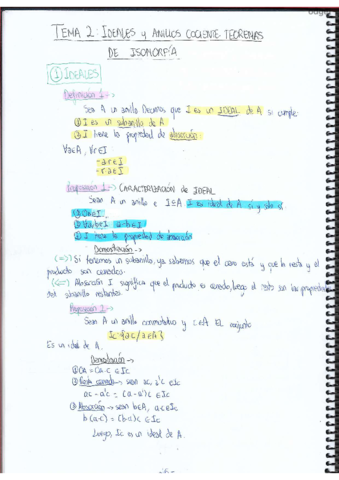 TEMA 2: IDEALES y ANILLOS COCIENTE. TEOREMAS
DE ISOMORFÍA
① IDEALES
Definición 1 →
Sea A un anillo. Decimos que I es un IDEAL de A si cumple:
① I es un subanillo de A
② I tiene la propiedad de absorción:
∀a∈A, ∀r∈I
- a·r∈I
- r·a∈I
Proposición 1 → CARACTERIZACIÓN de IDEAL
Sea A un anillo e I⊆A. I es ideal de A si y sólo si
① 0A∈I
② ∀a,b∈I a-b∈I
③ I tiene la propiedad de absorción
Demostración →
(=>) Si tenemos un subanillo, ya sabemos que el cero está y que la resta y el
producto son cerrados.
(<=) Absorción I significa que el producto es cerrado, luego el resto son las propiedades
del subanillo restantes.
Proposición 2 →
Sea A un anillo conmutativo y c∈A. El conjunto
Ic = {ac / a∈A}
Es un ideal de A.
Demostración →
① 0A = 0A·c ∈ Ic
② Resta cerrada → sean ac, a'c ∈ Ic
ac - a'c = (a-a')c ∈ Ic
③ Absorción → sean b∈A, ac∈Ic
b(a·c) = (b·a)c ∈ Ic
Luego, Ic es un ideal de A.